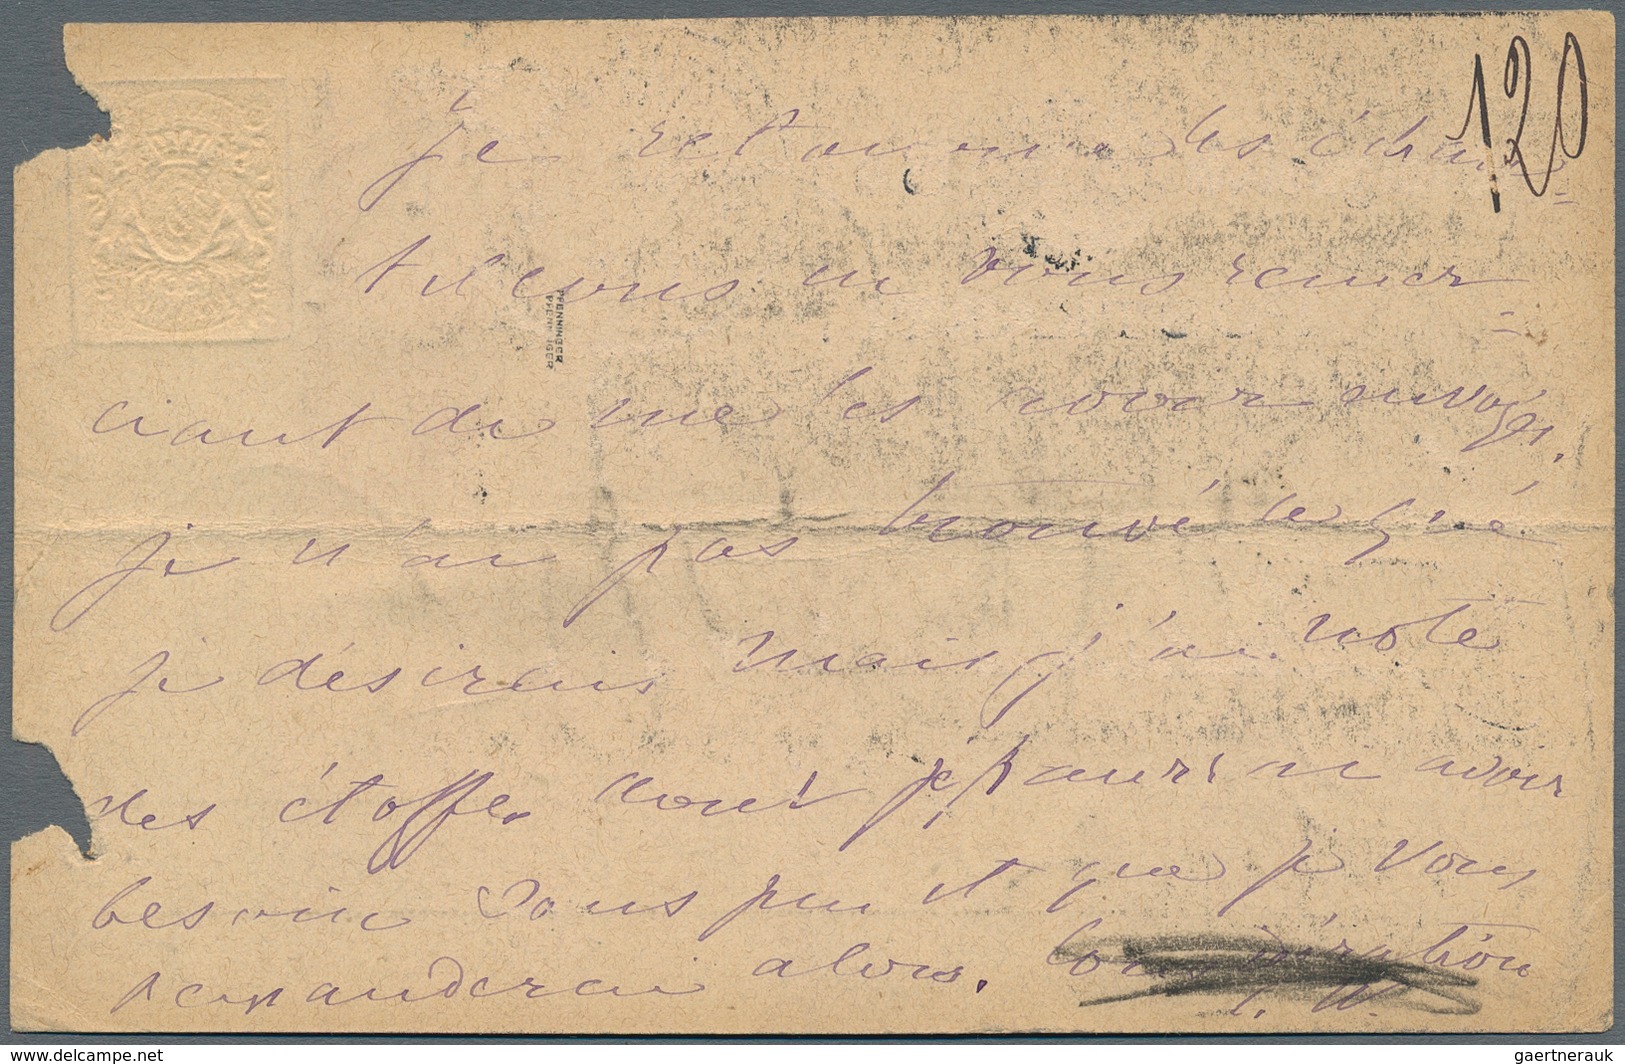 120
Je retourne les échan=
tillons en vous remer=
ciant de me les avoir envoyés.
je n'ai pas trouvé ce que
je désirais mais j'ai noté
des étoffes dont je pourrai avoir
besoin dans peu et que je vous
demanderai alors. Considération
PFENNINGER
PFENNINGER
gaertnerauk delcampe.net